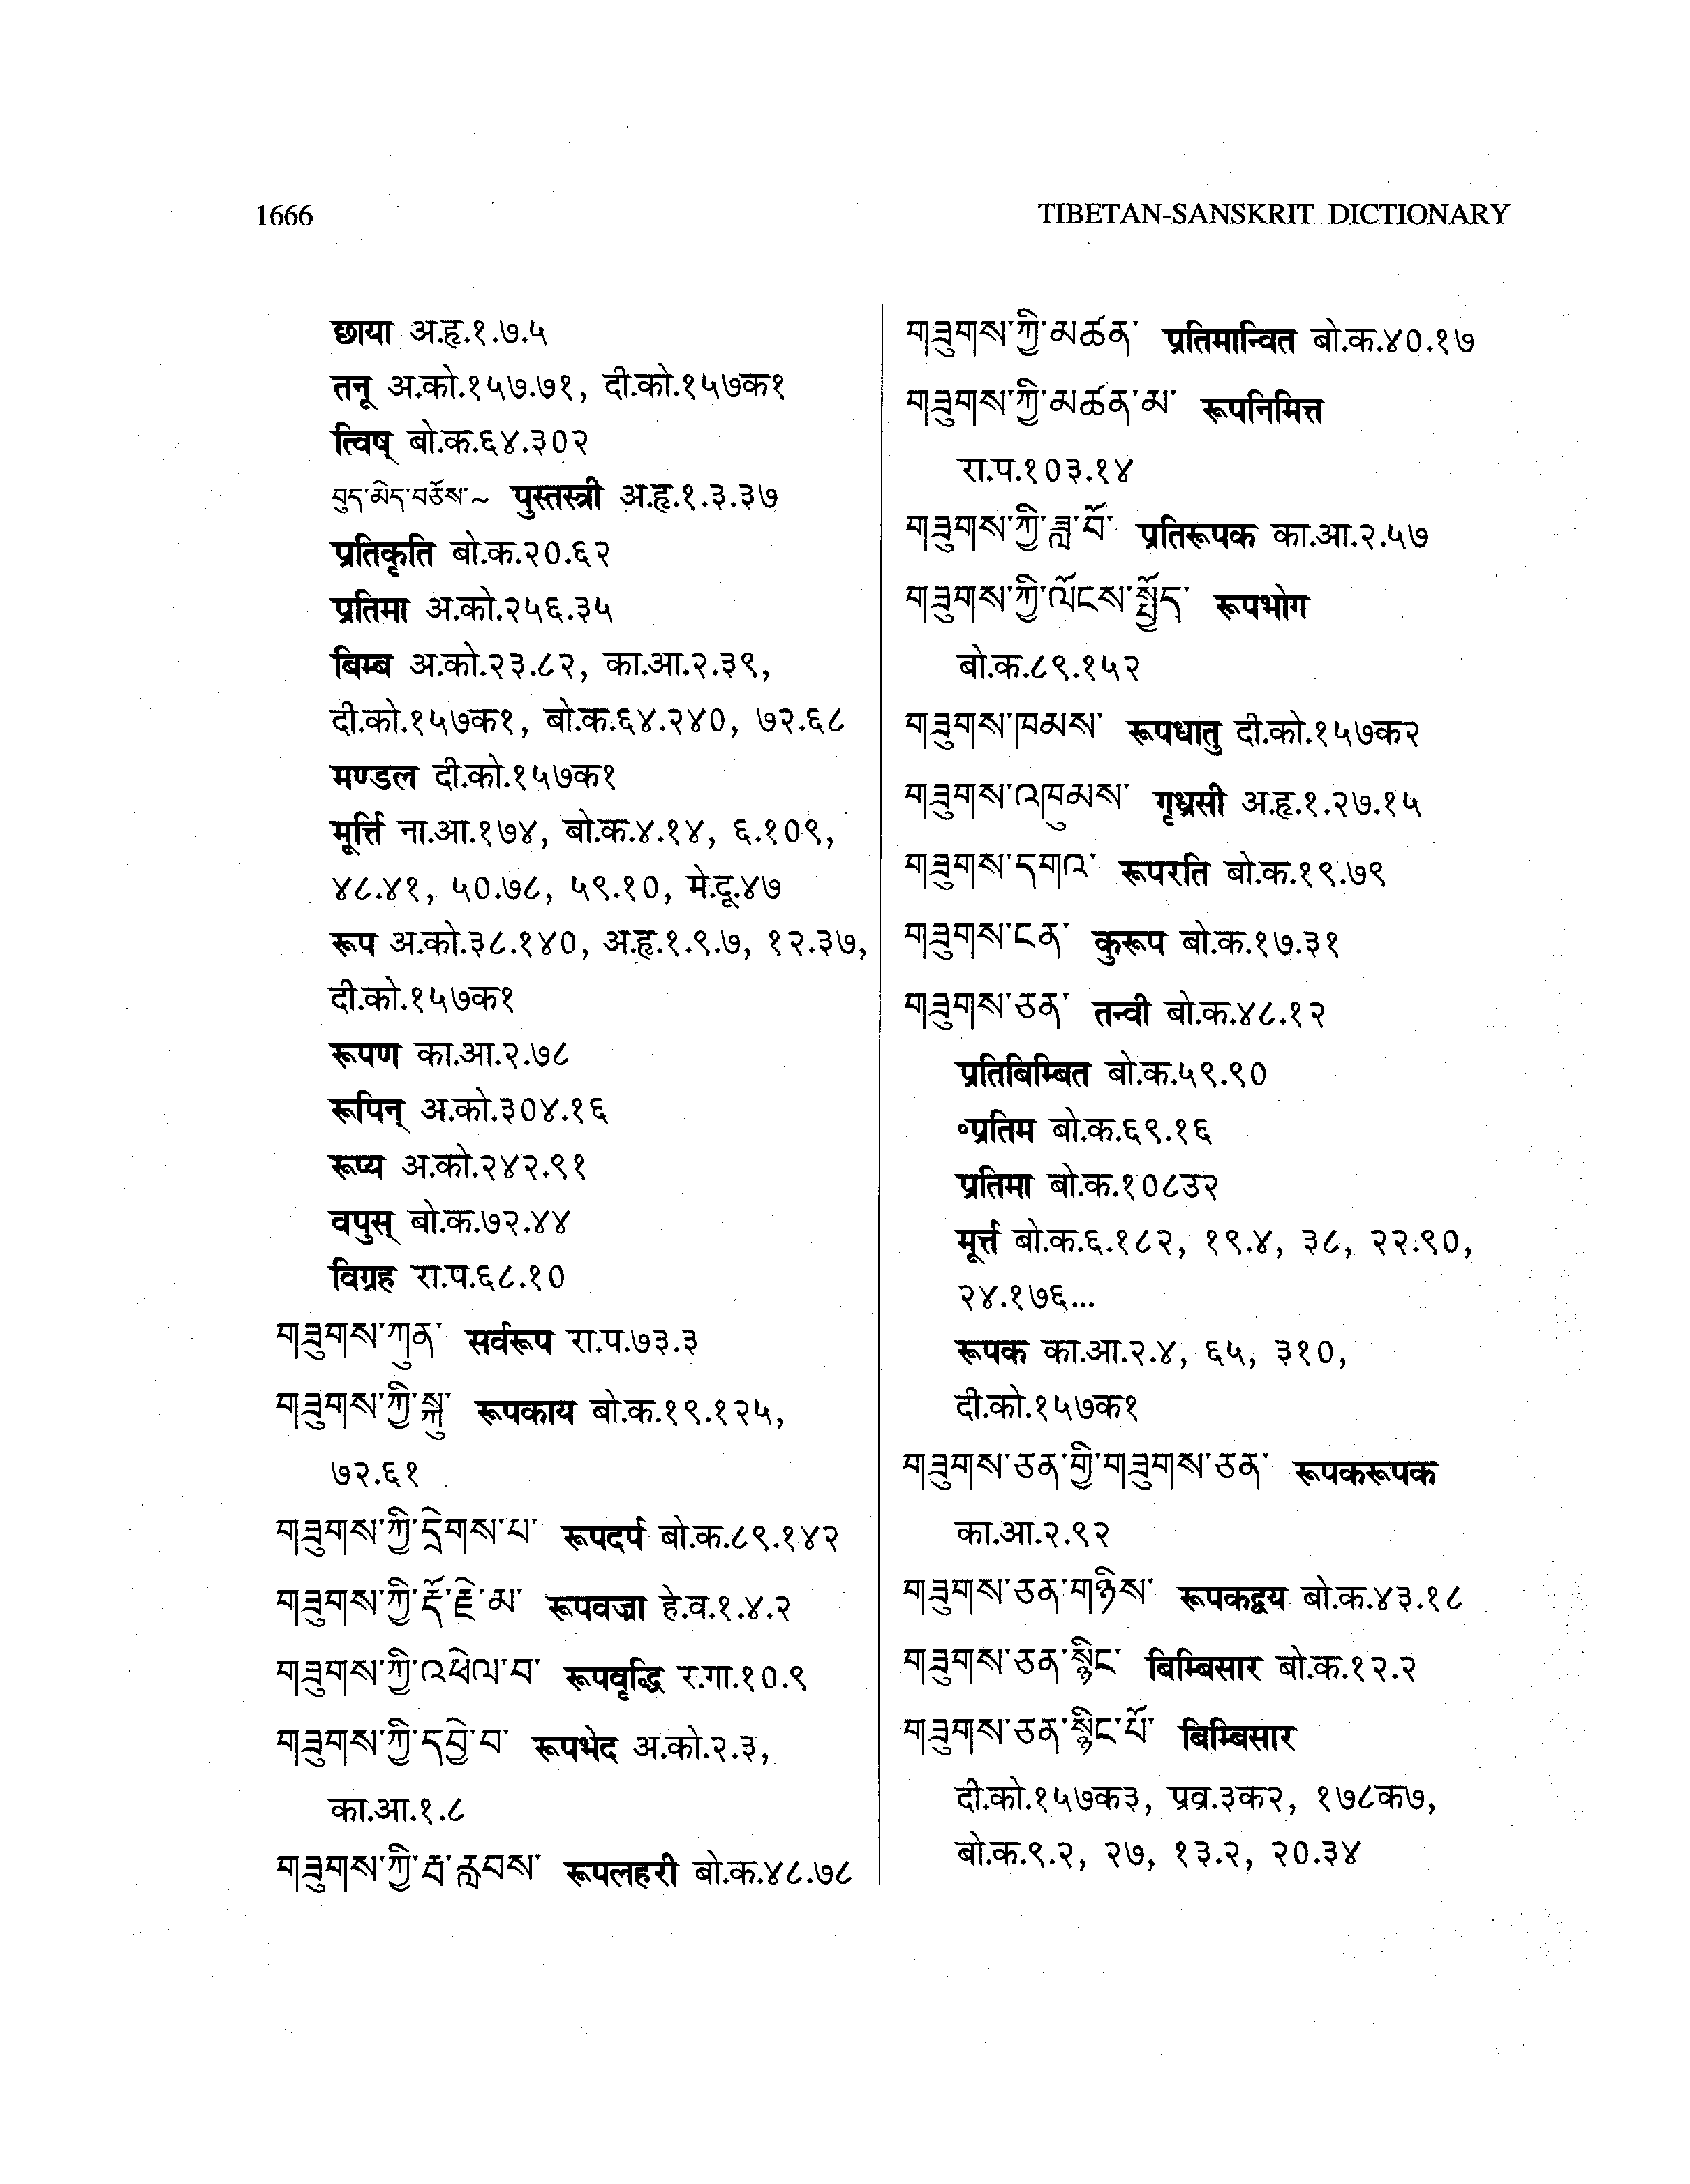 1666
TIBETAN-SANSKRIT DICTIONARY
छाया अ.हृ.१.७.५
तनू अ.को.१५७.७१, दी.को.१५७क१
त्विष् बो.क.६४.३०२
བུད་མེད་བཅོས་~ पुस्तस्त्री अ.हृ.१.३.३७
प्रतिकृति बो.क.२०.६२
प्रतिमा अ.को.२५६.३५
बिम्ब अ.को.२३.८२, का.आ.२.३९,
दी.को.१५७क१, बो.क.६४.२४०, ७२.६८
मण्डल दी.को.१५७क१
मूर्त्ति ना.आ.१७४, बो.क.४.१४, ६.१०९,
४८.४१, ५०.७८, ५९.१०, मे.दू.४७
रूप अ.को.३८.१४०, अ.हृ.१.९.७, १२.३७,
दी.को.१५७क१
रूपण का.आ.२.७८
रूपिन् अ.को.३०४.१६
रूप्य अ.को.२४२.९१
वपुस् बो.क.७२.४४
विग्रह रा.प.६८.१०
གཟུགས་ཀུན་ सर्वरूप रा.प.७३.३
གཟུགས་ཀྱི་སྐུ་ रूपकाय बो.क.१९.१२५,
७२.६१
གཟུགས་ཀྱི་དྲེགས་པ་ रूपदर्प बो.क.८९.१४२
གཟུགས་ཀྱི་རྡོ་རྗེ་མ་ रूपवज्रा हे.व.१.४.२
གཟུགས་ཀྱི་འཕེལ་བ་ रूपवृद्धि र.गा.१०.९
གཟུགས་ཀྱི་དབྱེ་བ་ रूपभेद अ.को.२.३,
का.आ.१.८
གཟུགས་ཀྱི་རྦ་རླབས་ रूपलहरी बो.क.४८.७८
གཟུགས་ཀྱི་མཚན་ प्रतिमान्वित बो.क.४०.१७
གཟུགས་ཀྱི་མཚན་མ་ रूपनिमित्त
रा.प.१०३.१४
གཟུགས་ཀྱི་ཟླ་བོ་ प्रतिरूपक का.आ.२.५७
གཟུགས་ཀྱི་ལོངས་སྤྱོད་ रूपभोग
बो.क.८९.१५२
གཟུགས་ཁམས་ रूपधातु दी.को.१५७क२
གཟུགས་འཁུམས་ गृध्रसी अ.हृ.१.२७.१५
གཟུགས་དགའ་ रूपरति बो.क.१९.७९
གཟུགས་ངན་ कुरूप बो.क.१७.३१
གཟུགས་ཅན་ तन्वी बो.क.४८.१२
प्रतिबिम्बित बो.क.५९.९०
॰प्रतिम बो.क.६९.१६
प्रतिमा बो.क.१०८३२
मूर्त्त बो.क.६.१८२, १९.४, ३८, २२.९०,
२४.१७६...
रूपक का.आ.२.४, ६५, ३१०,
दी.को.१५७क१
གཟུགས་ཅན་གྱི་གཟུགས་ཅན་ रूपकरूपक
का.आ.२.९२
གཟུགས་ཅན་གཉིས་ रूपकद्वय बो.क.४३.१८
གཟུགས་ཅན་སྙིང་ बिम्बिसार बो.क.१२.२
གཟུགས་ཅན་སྙིང་པོ་ बिम्बिसार
दी.को.१५७क३, प्रव्र.३क२, १७८क७,
बो.क.९.२, २७, १३.२, २०.३४